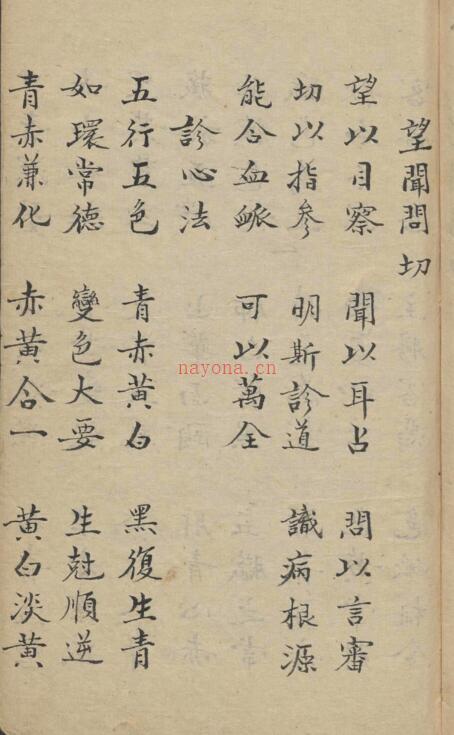 望聞問切
望以目察 聞以耳占 問以言審
切以指參 明斯診道 識病根源
能合血脈 可以萬全
診心法
五行五色 青赤黃白 黑復生青
如環常德 變色大要 生尅順逆
青赤兼化 赤黃合一 黃白淡黃
nayona.cn